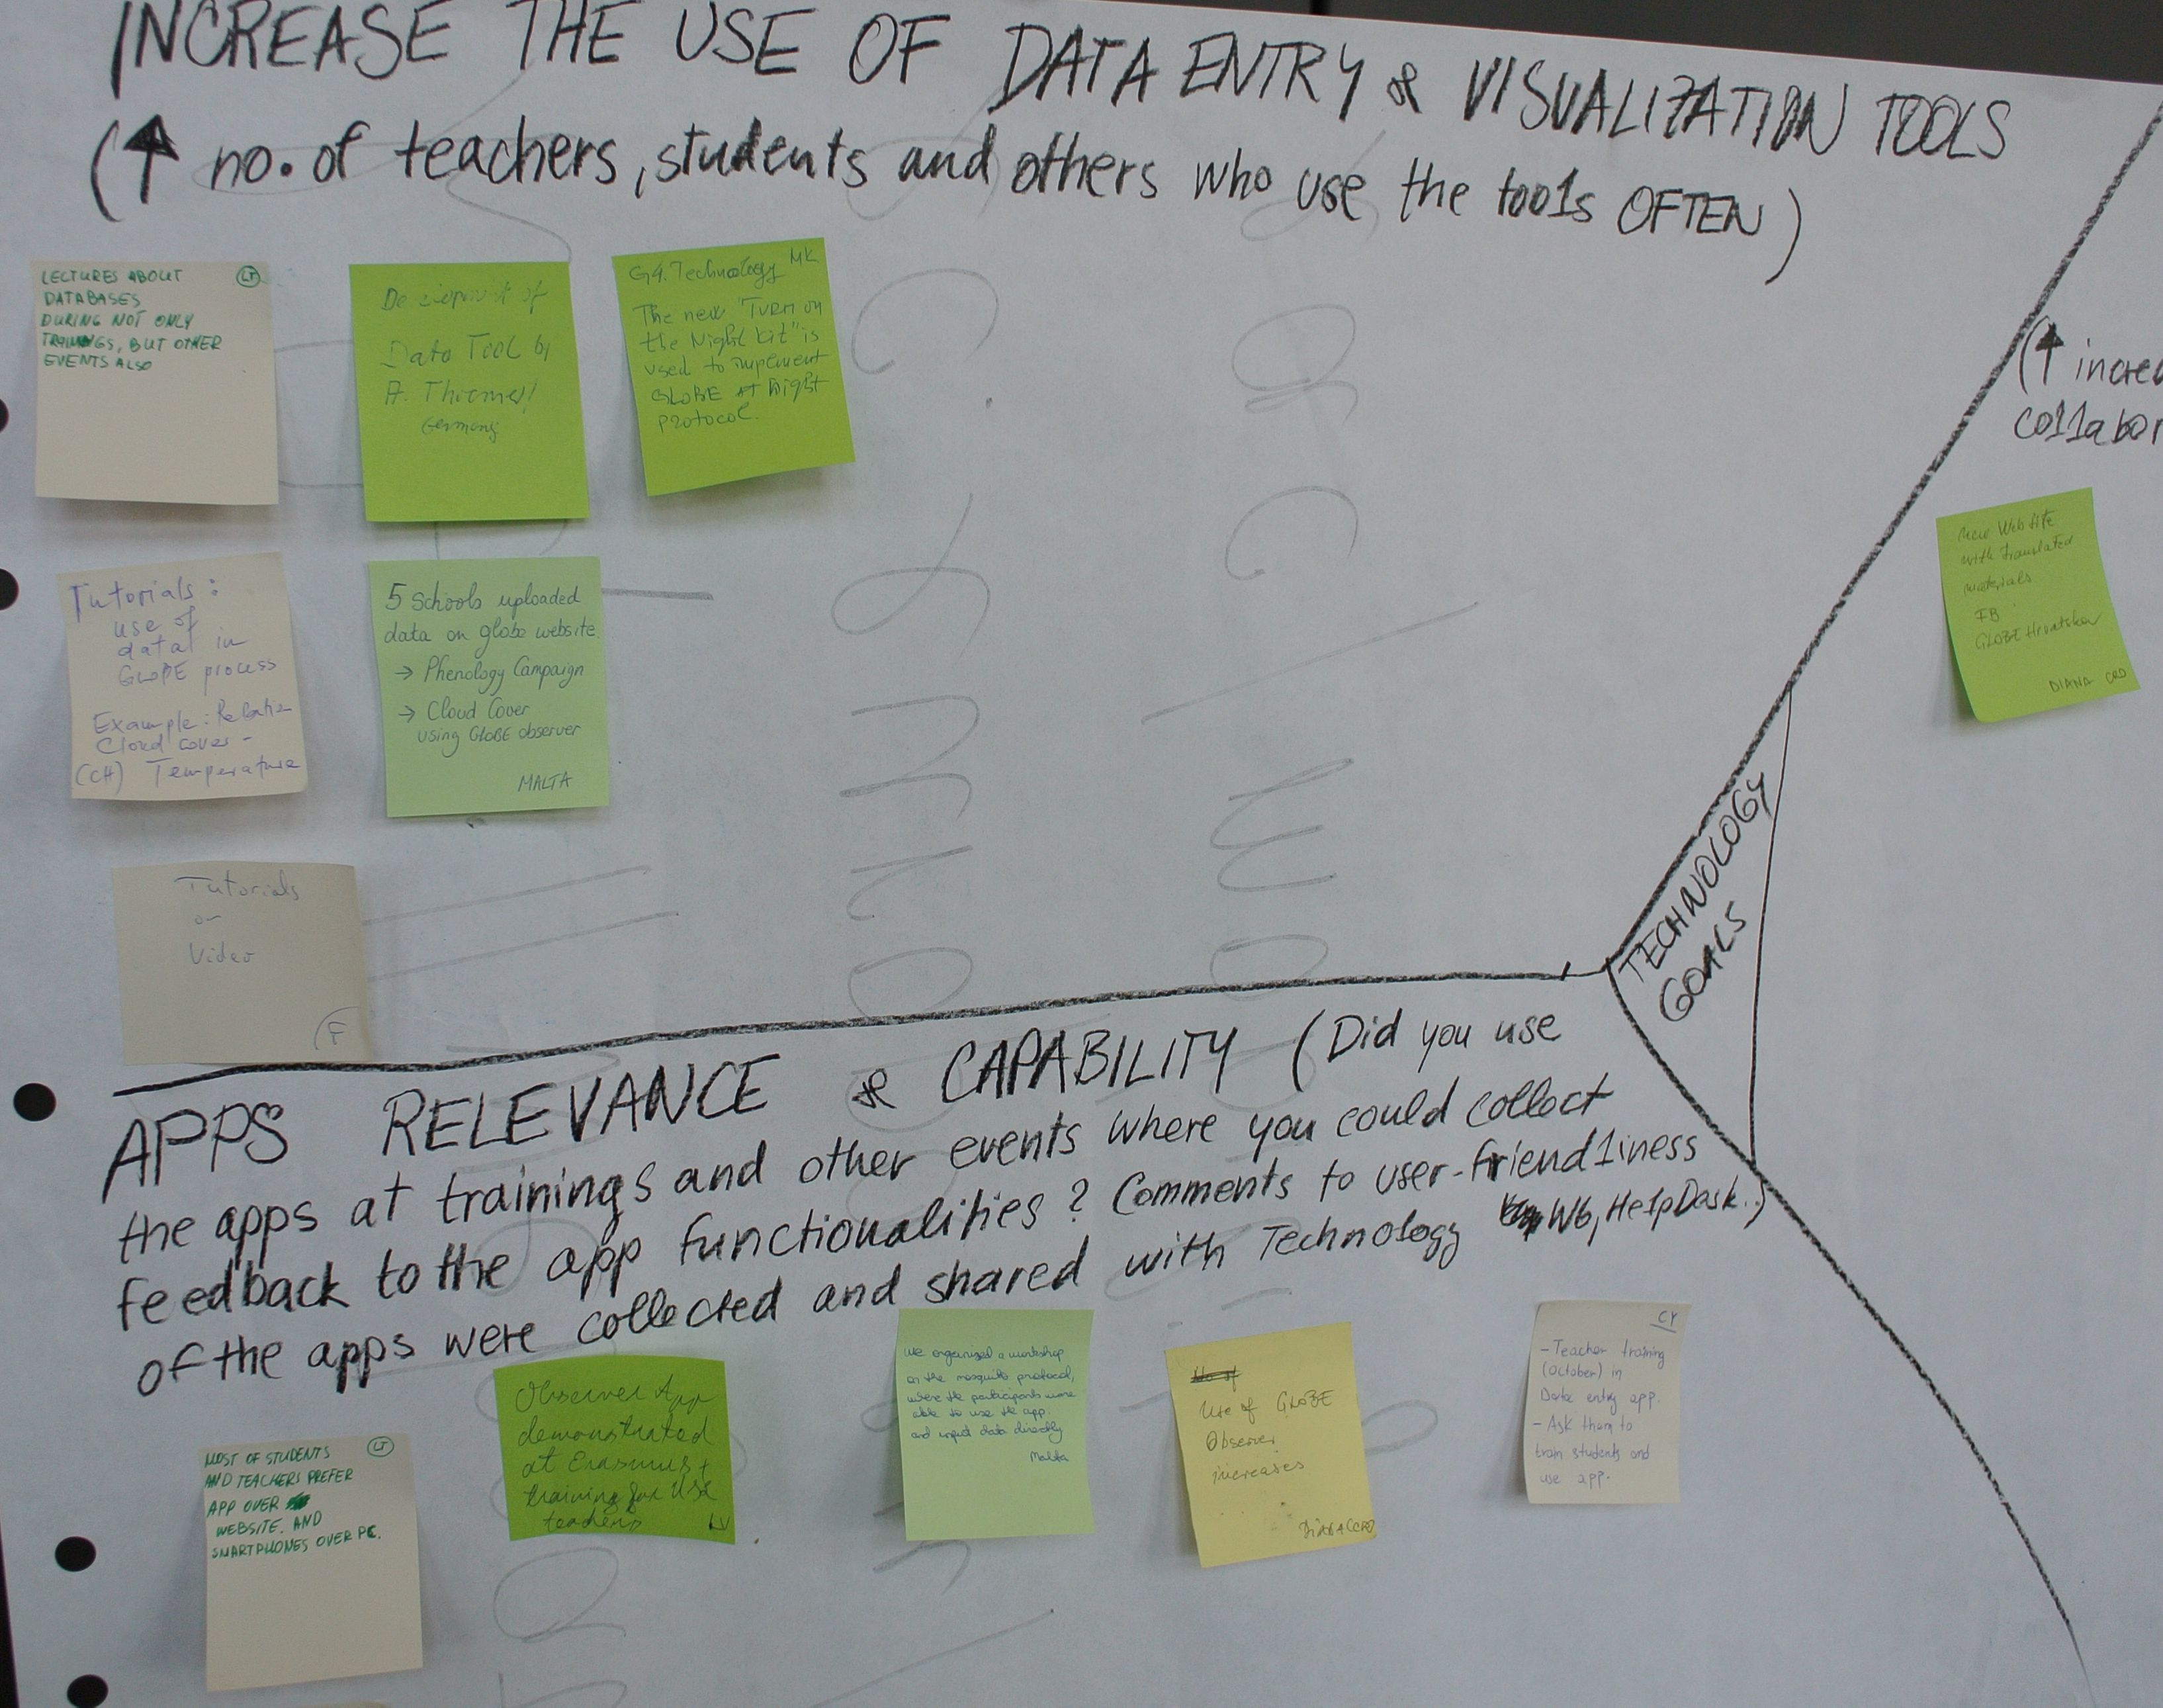 INCREASE THE USE OF DATA ENTRY & VISUALIZATION TOOLS
(↑ no. of teachers, students and others who use the tools OFTEN)
LECTURES ABOUT LT
DATABASES
DURING NOT ONLY
TRAININGS, BUT OTHER
EVENTS ALSO
of
Data Tool by
A.
Germany
G4. Technology MK
The new "Turn on
the Night Kit" is
used to implement
GLOBE AT Night
protocol.
Tutorials:
use of
data in
GLOBE process
Example: Relation
Cloud cover -
(CH) Temperature
5 Schools uploaded
data on globe website.
→ Phenology Campaign
→ Cloud Cover
using GLOBE observer
MALTA
Tutorials
or
Video
F
TECHNOLOGY
GOALS
(↑ increa
collabor
New Web site
with translated
materials
FB
GLOBE Hrvatska
DIANA CRO
APPS RELEVANCE & CAPABILITY (Did you use
the apps at trainings and other events where you could collect
feedback to the app functionalities? Comments to user-friendliness
of the apps were collected and shared with Technology WG, HelpDesk..)
MOST OF STUDENTS LT
AND TEACHERS PREFER
APP OVER
WEBSITE. AND
SMARTPHONES OVER PC.
Observer App
demonstrated
at Erasmus +
training for
teachers LV
We organized a workshop
on the mosquito protocol,
where the participants were
able to use the app.
and input data directly
Malta
Use of GLOBE
Observer
increases
CY
- Teacher training
(October) in
Data entry app.
- Ask them to
train students and
use app.